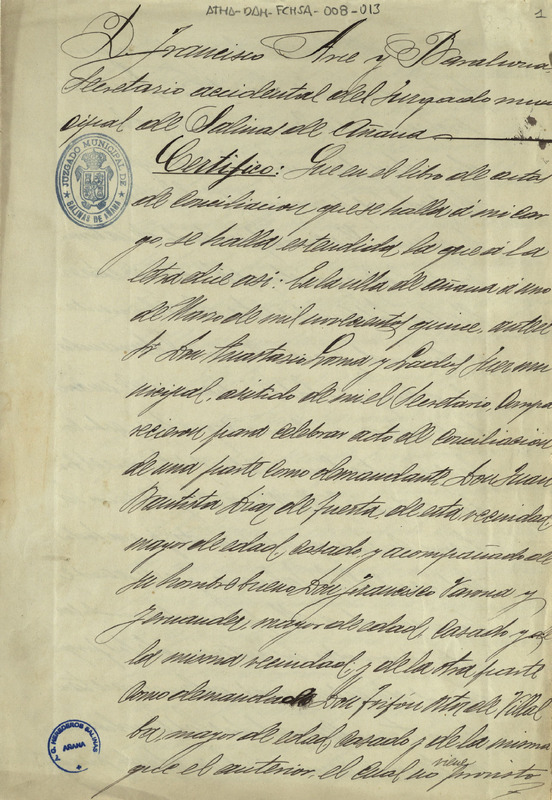 ATHA-DAH-FCHSA-008-013
1
D. Francisco Arce y Barahona
Secretario accidental del Juzgado muni
cipal de Salinas de Añana
JUZGADO MUNICIPAL DE
SALINAS DE AÑANA
Certifico: Que en el libro de actos
de conciliacion, que se halla á mi car
go, se halla estendida la que á la
letra dice asi: En la villa de Añana á uno
de Marzo de mil novecientos quince, ante el
Sr. Don Anastasio y Juez mu
nicipal, asistido de mi el Secretario, compa
recieron, para celebrar acto de conciliacion
de una parte como demandante Don Juan
Bautista Diaz de Tuesta, de esta vecindad
mayor de edad, casado, y acompañado de
su hombre bueno, Don Francisco y
Fernandez, mayor de edad, casado y de
la misma vecindad; y de la otra parte
como demandado Don Trifón Ortiz de Villal
ba, mayor de edad, casado y de la misma
que el anterior, el cual no viene provisto
T. G. HEREDEROS SALINAS
AÑANA